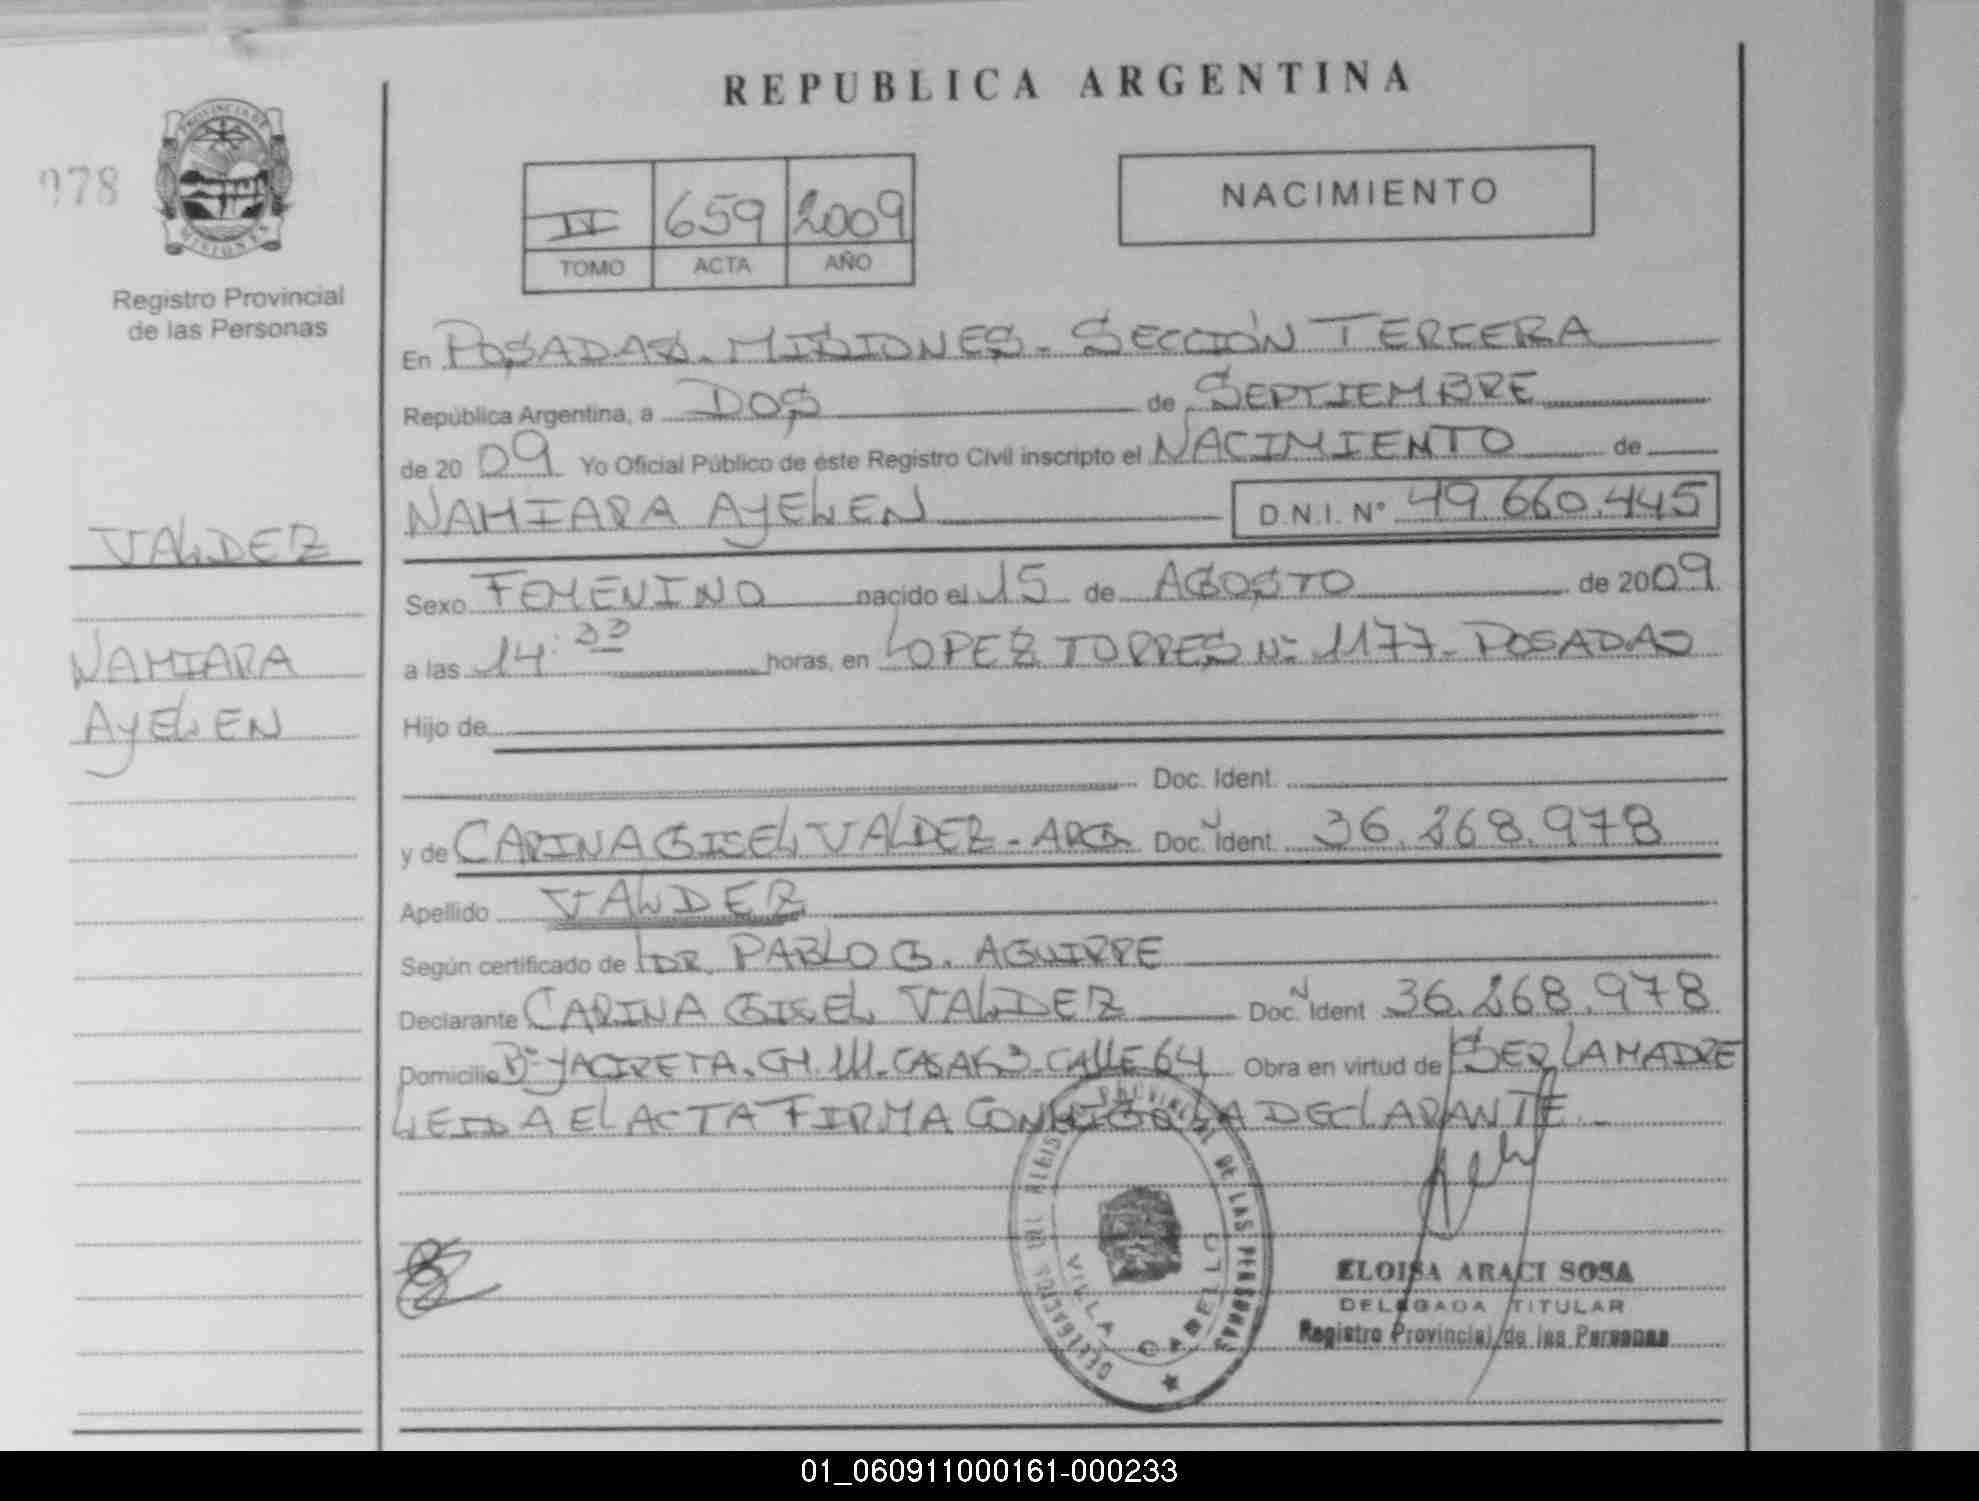 REPUBLICA ARGENTINA
978
PROVINCIA DE
MISIONES
Registro Provincial
de las Personas
II 659 2009
TOMO ACTA AÑO
NACIMIENTO
En POSADAS. MISIONES. SECCIÓN TERCERA
República Argentina, a DOS de SEPTIEMBRE
de 2009 Yo Oficial Público de este Registro Civil inscripto el NACIMIENTO de
NAHIARA AYELEN D.N.I. Nº 49.660.445
VALDEZ
Sexo FEMENINO nacido el 15 de AGOSTO de 2009
NAHIARA
a las 14:33 horas, en LOPEZ TORRES Nº 1177. POSADAS
AYELEN
Hijo de
Doc. Ident.
y de CARINA GISEL VALDEZ - ARG. Doc. Ident. 36.268.978
Apellido VALDEZ
Según certificado de DR. PABLO G. AGUIRRE
Declarante CARINA GISEL VALDEZ Doc. Ident 36.268.978
Domicilio Bº YACIRETA. CH. 111. CASA 63. CALLE 64 Obra en virtud de SER LA MADRE
LEIDA EL ACTA FIRMA CONMIGO LA DECLARANTE.
DELEGACION DEL REGISTRO PROVINCIAL DE LAS PERSONAS
VILLA CABELLO
ELOISA ARACI SOSA
DELEGADA TITULAR
Registro Provincial de las Personas
01_060911000161-000233